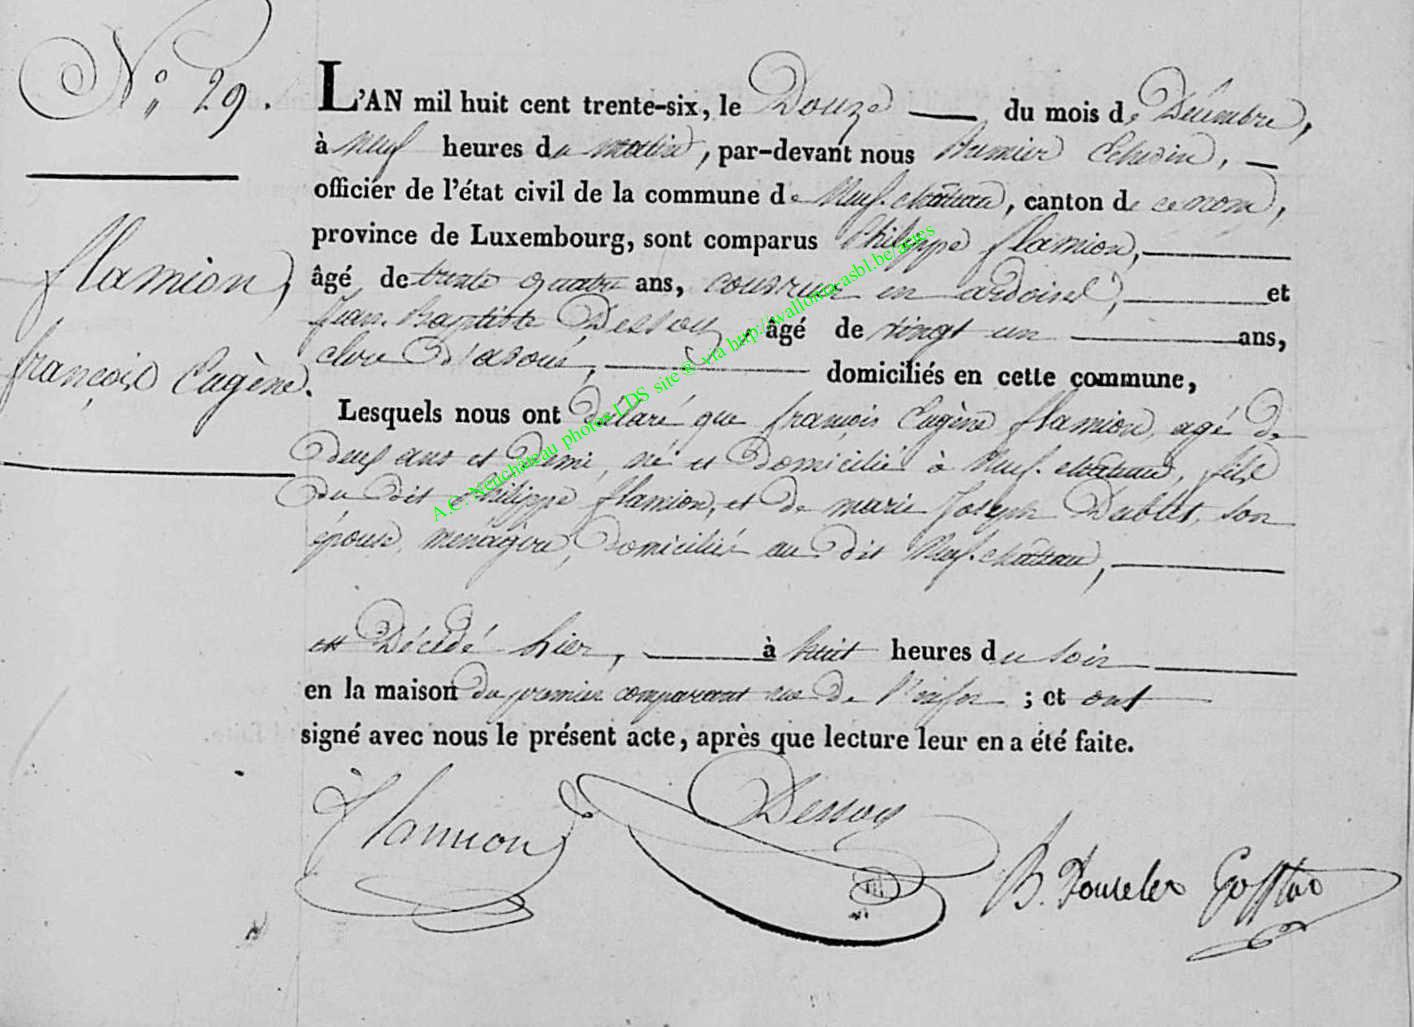 N° 29.
L'AN mil huit cent trente-six, le Douze du mois de Décembre,
à neuf heures du matin, par-devant nous Premier Echevin,
officier de l'état civil de la commune de Neufchâteau, canton de ce nom,
province de Luxembourg, sont comparus Philippe flamion,
âgé de trente quatre ans, couvreur en ardoises, et
Jean Baptiste Dessoy, âgé de vingt un ans,
clerc d'avoué, domiciliés en cette commune,
flamion,
françois Eugène.
Lesquels nous ont déclaré que françois Eugène flamion, agé de
deux ans et demi, né et domicilié à Neufchâteau, fils
du dit Philippe flamion, et de marie Joseph son
épouse, ménagère, domiciliés au dit Neufchâteau,
est Décédé hier, à huit heures du soir
en la maison du premier comparant rue de ; et ont
signé avec nous le présent acte, après que lecture leur en a été faite.
Flamion Dessoy
A.C. Neuchâteau photos LDS site @ via http://walloniaasbl.be/actes